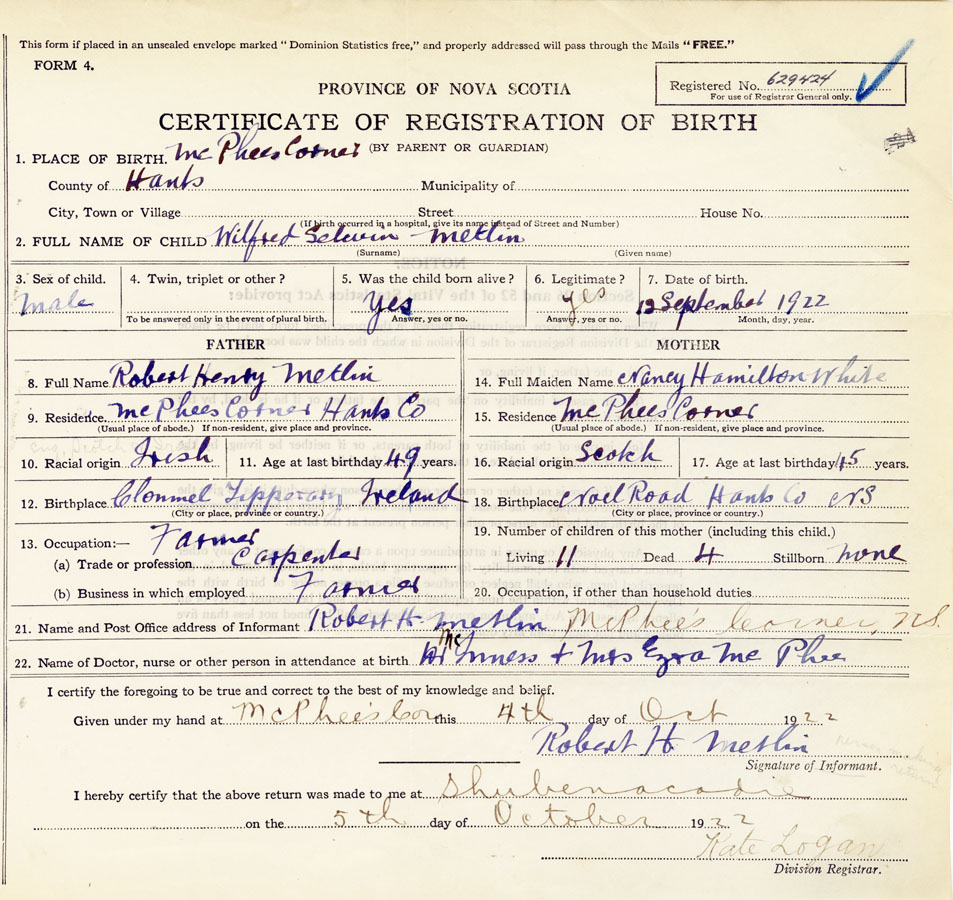 This form if placed in an unsealed envelope marked "Dominion Statistics free," and properly addressed will pass through the Mails "FREE."
FORM 4.
Registered No. 629424
For use of Registrar General only.
PROVINCE OF NOVA SCOTIA
CERTIFICATE OF REGISTRATION OF BIRTH
(BY PARENT OR GUARDIAN)
1. PLACE OF BIRTH. McPhees Corner
County of Hants Municipality of
City, Town or Village Street House No.
(If birth occurred in a hospital, give its name instead of Street and Number)
2. FULL NAME OF CHILD Wilfred Selwin Metlin
(Surname) (Given name)
3. Sex of child. 4. Twin, triplet or other? 5. Was the child born alive? 6. Legitimate? 7. Date of birth.
Male Yes yes 12 September 1922
To be answered only in the event of plural birth. Answer, yes or no. Answer, yes or no. Month, day, year.
FATHER MOTHER
8. Full Name Robert Henry Metlin 14. Full Maiden Name Nancy Hamilton White
9. Residence. McPhees Corner Hants Co 15. Residence McPhees Corner
(Usual place of abode.) If non-resident, give place and province. (Usual place of abode.) If non-resident, give place and province.
10. Racial origin Irish 11. Age at last birthday 49 years. 16. Racial origin Scotch 17. Age at last birthday 45 years.
12. Birthplace Clonmel Tipperary Ireland 18. Birthplace Noel Road Hants Co NS
(City or place, province or country.) (City or place, province or country.)
13. Occupation:— Farmer 19. Number of children of this mother (including this child.)
(a) Trade or profession Carpenter Living 11 Dead 4 Stillborn none
(b) Business in which employed Farmer 20. Occupation, if other than household duties
21. Name and Post Office address of Informant Robert H. Metlin McPhee's Corner, N.S.
22. Name of Doctor, nurse or other person in attendance at birth Mc Inness + Mrs Ezra McPhee
I certify the foregoing to be true and correct to the best of my knowledge and belief.
Given under my hand at McPhee's Cor this 4th day of Oct 1922
Robert H Metlin
Signature of Informant.
I hereby certify that the above return was made to me at Shubenacadie
on the 5th day of October 1922
Kate Logan
Division Registrar.